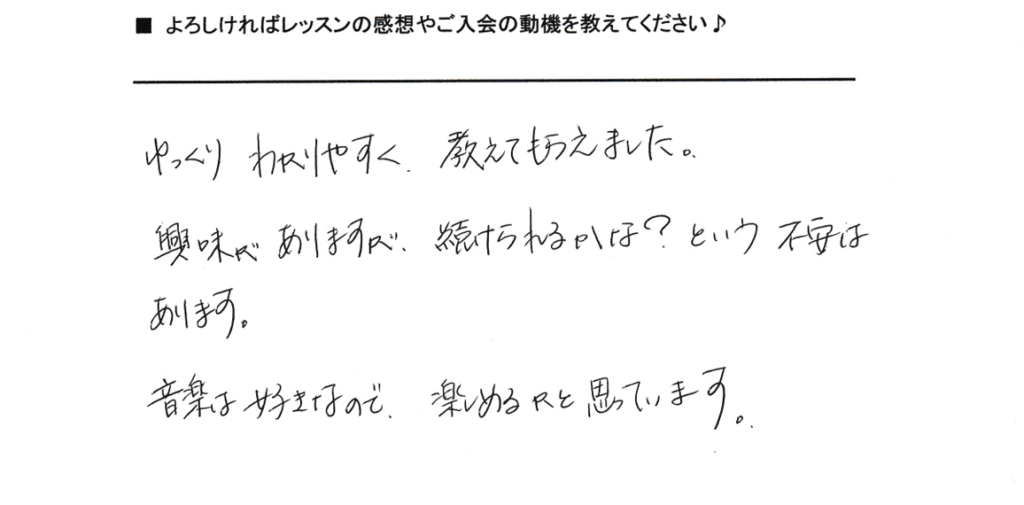 ■ よろしければレッスンの感想やご入会の動機を教えてください♪
ゆっくり わかりやすく、教えてもらえました。
興味が ありますが、続けられるかな？という 不安は
あります。
音楽は好きなので、楽しめるかと思っています。